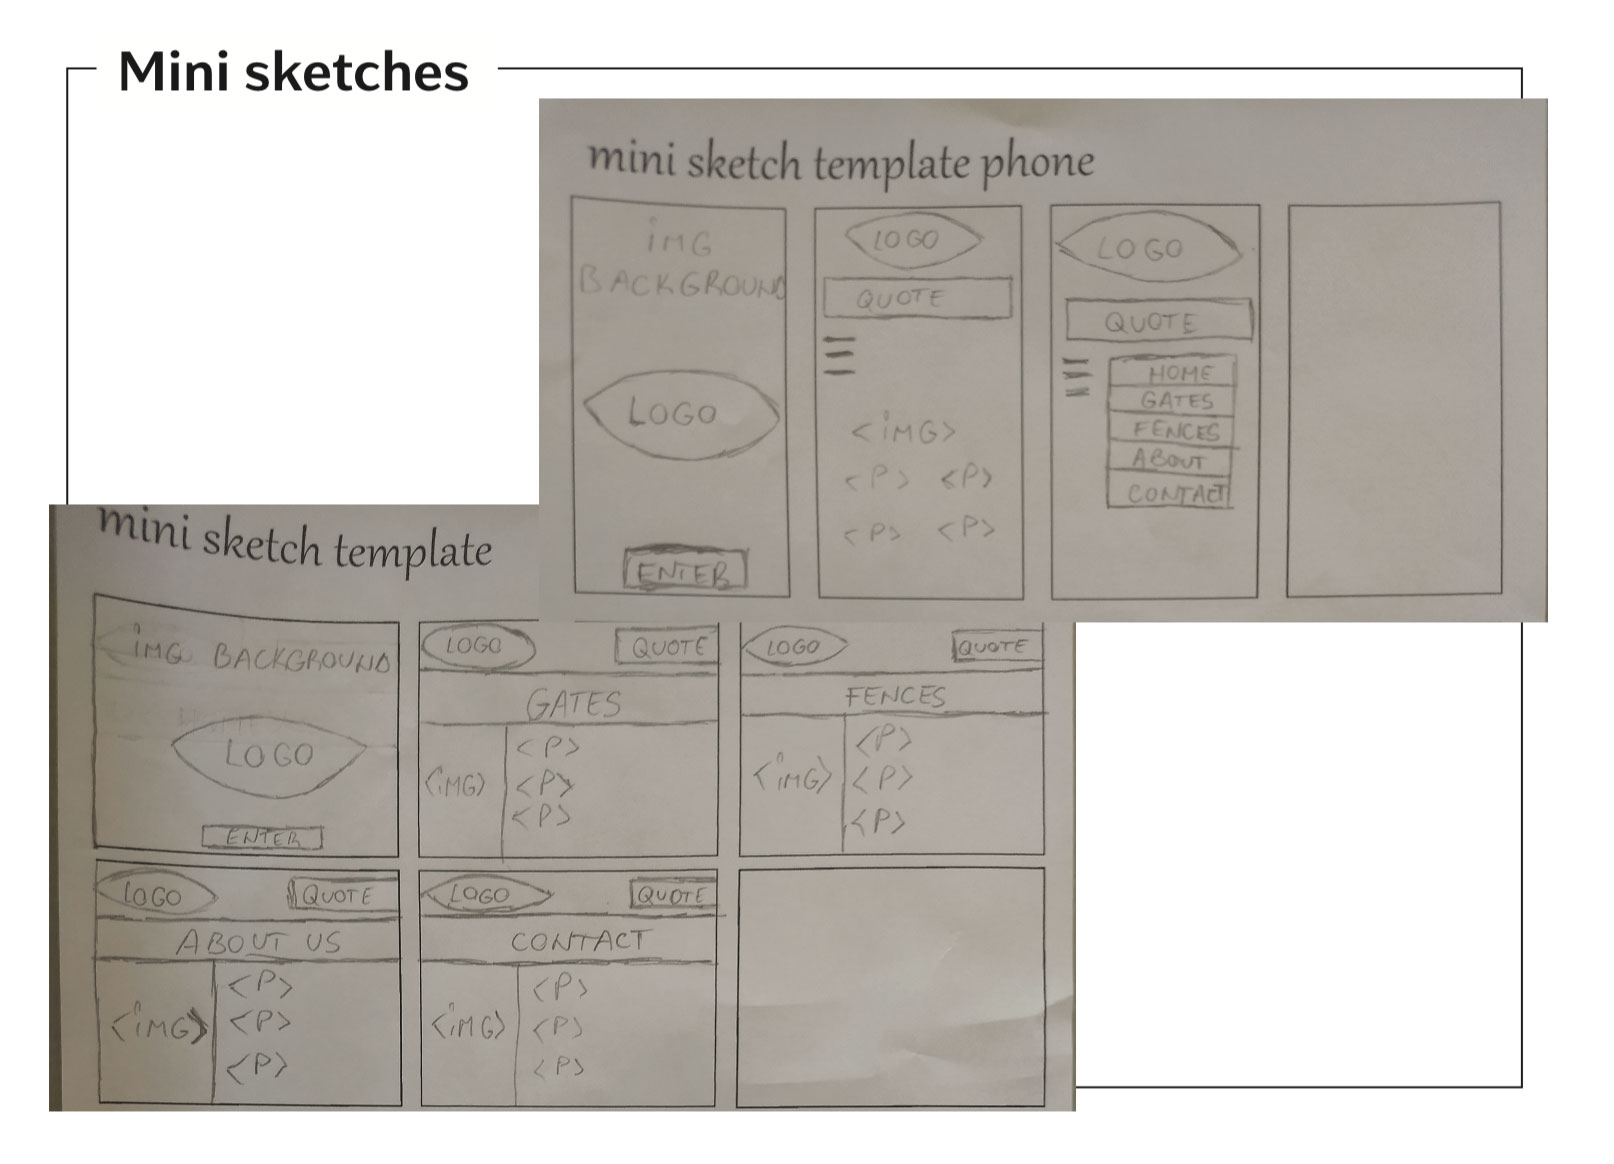 Mini sketches
mini sketch template phone
iMG
BACKGROUND
LOGO
ENTER
LOGO
QUOTE
<iMG>
<P> <P>
<P> <P>
LOGO
QUOTE
HOME
GATES
FENCES
ABOUT
CONTACT
mini sketch template
iMG BACKGROUND
LOGO
ENTER
LOGO QUOTE
GATES
<iMG>
<P>
<P>
<P>
LOGO QUOTE
FENCES
<iMG>
<P>
<P>
<P>
LOGO QUOTE
ABOUT US
<iMG>
<P>
<P>
<P>
LOGO QUOTE
CONTACT
<iMG>
<P>
<P>
<P>